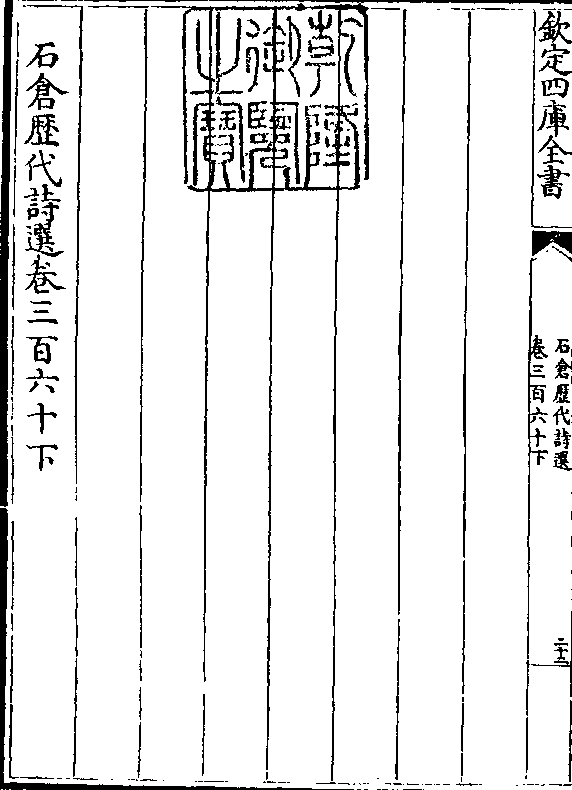 欽定四庫全書
石倉歴代詩選
卷三百六十下
二十三
乾隆
御覽
之寶
石倉歴代詩選卷三百六十下